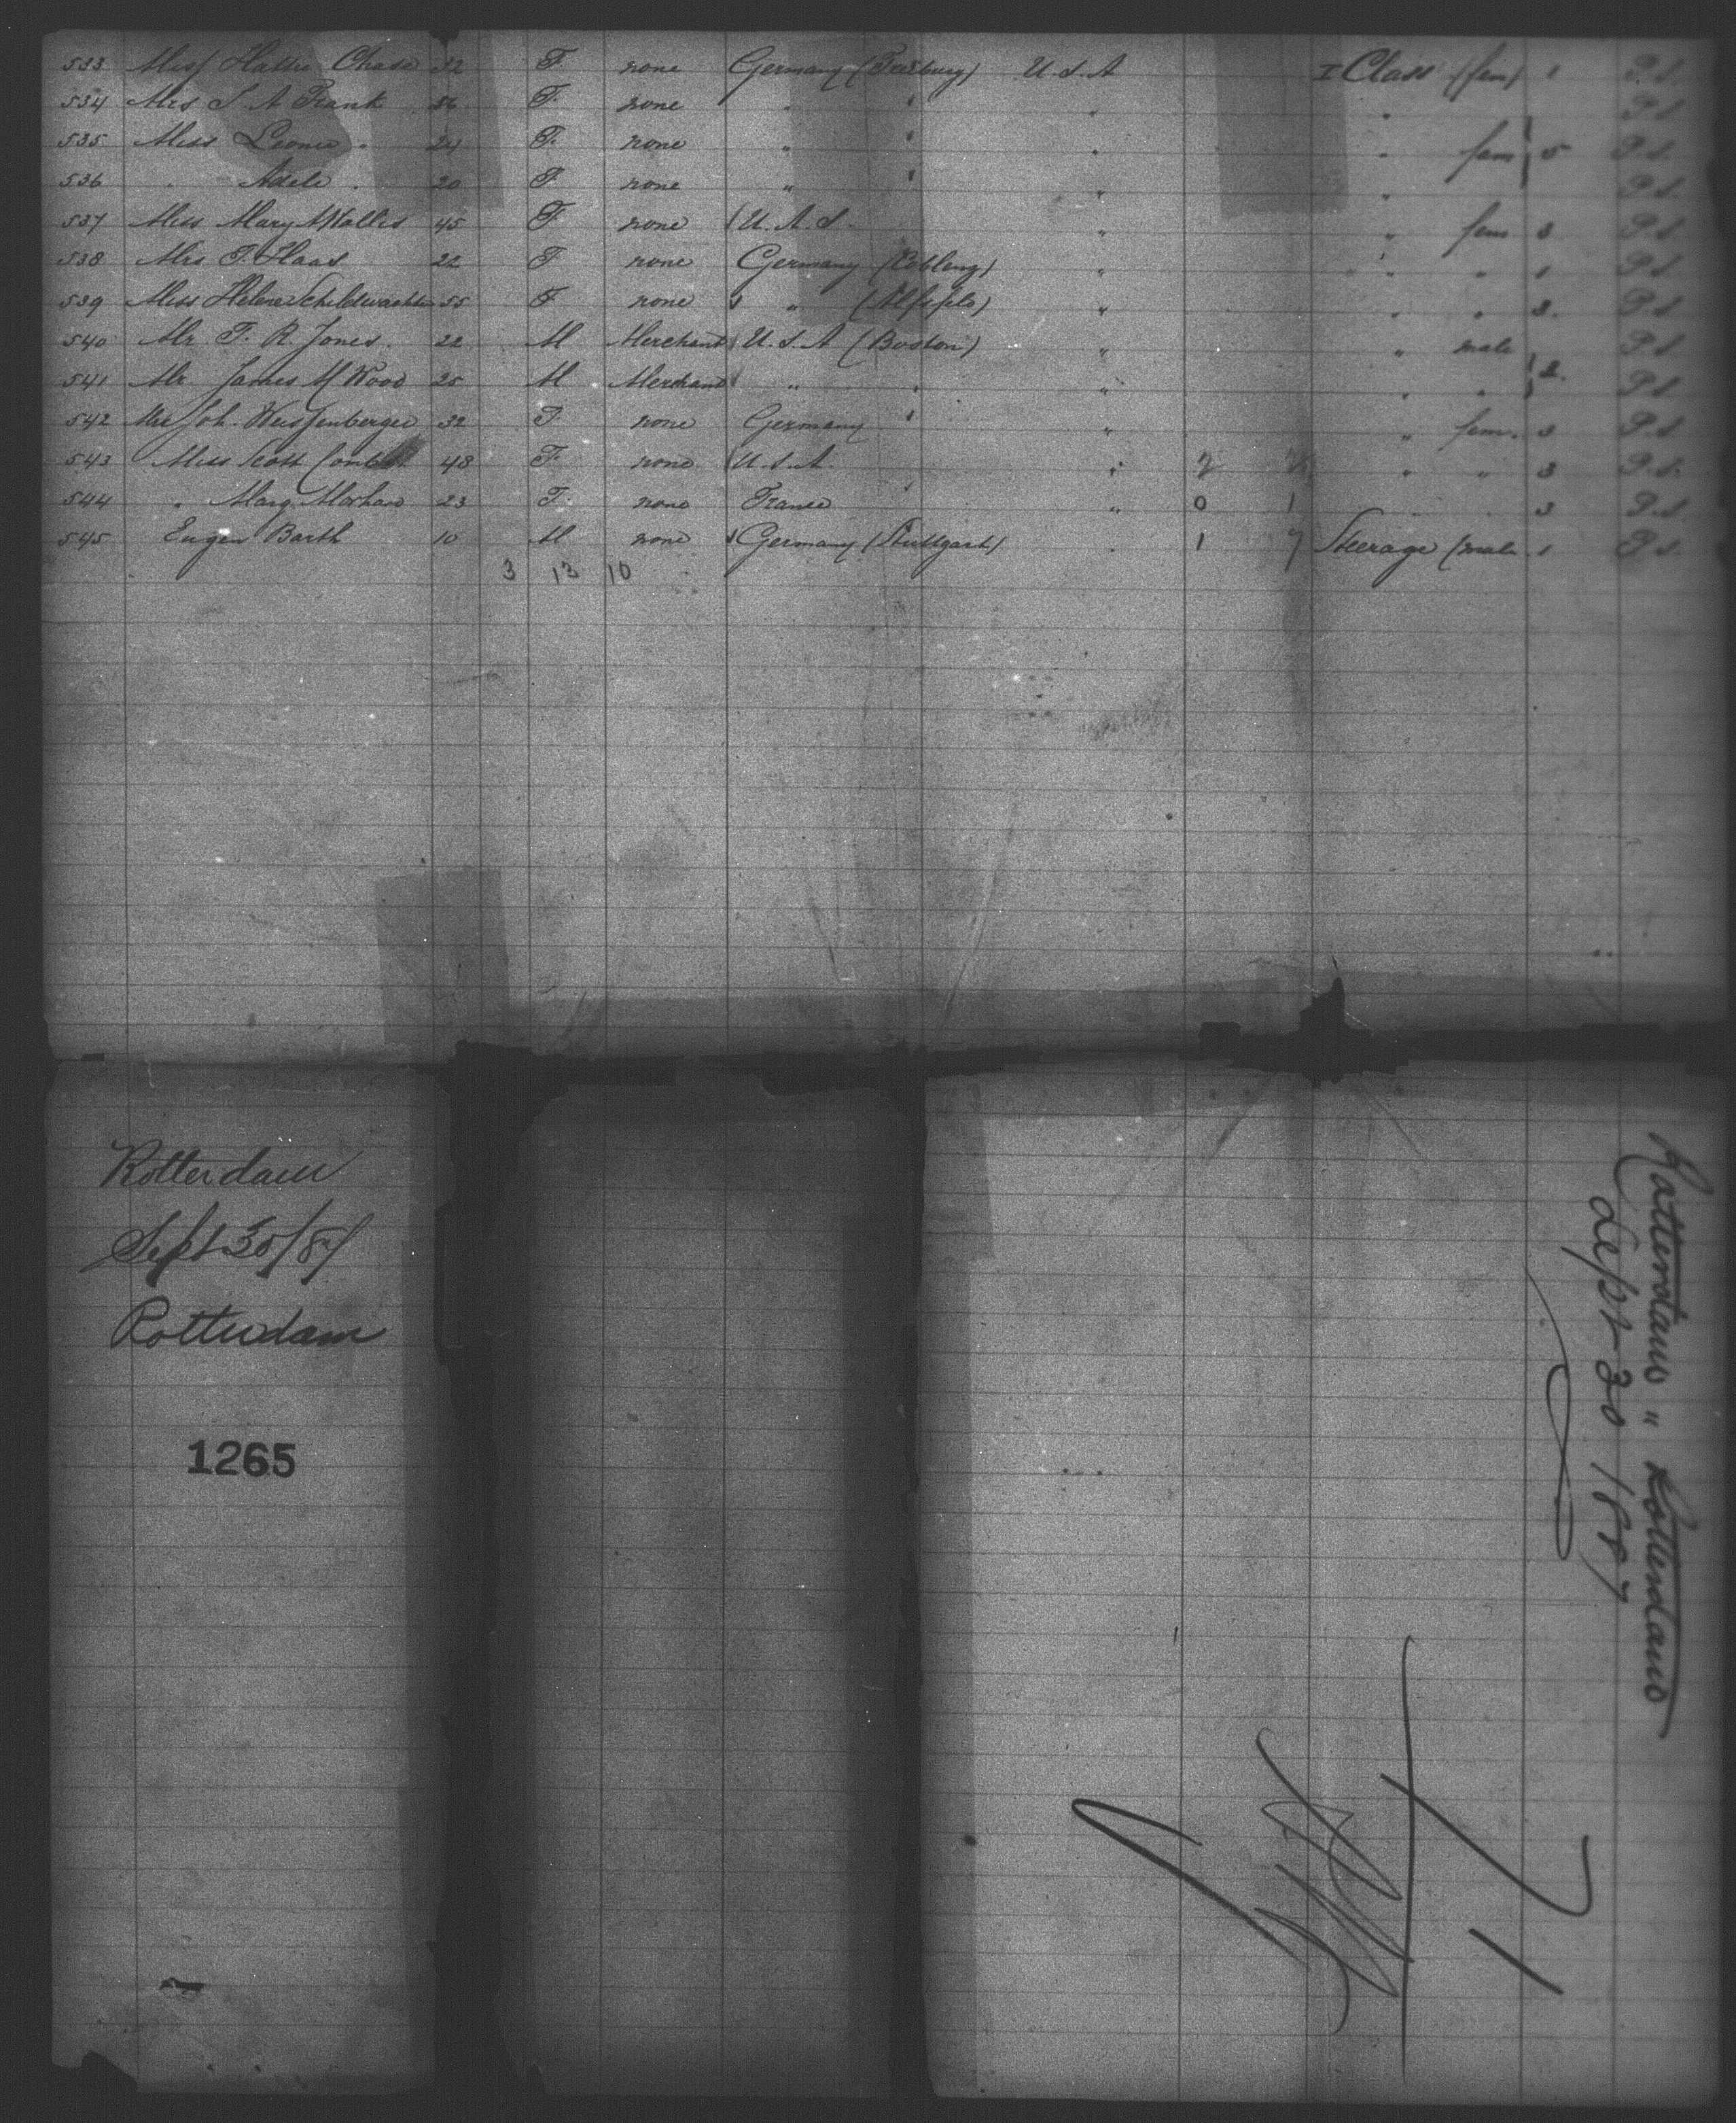 533 Miss Hattie Chase 32 F none Germany (Freiburg) U.S.A I Class (fem) 1 P.S.
534 Mrs S A Frank 56 F none " " " " P.S.
535 Miss Leonie " 24 F none " " " " fem 5 P.S.
536 " Adele " 20 F none " " " " P.S.
537 Miss Mary A Wallis 45 F none U.A.S. " " fem 3 P.S.
538 Mrs F. Haas 22 F none Germany (Coblenz) " " " 1 P.S.
539 Miss Helene Schildwachter 55 F none " " " " 3. P.S.
540 Mr F. R. Jones. 22 M Merchant U.S.A (Boston) " " male P.S.
541 Mr James M Wood 25 M Merchant " " " " " 2. P.S.
542 Mrs Joh. Weissenberger 32 F none Germany " " fem. 3 P.S.
543 Miss Scott 48 F none U.S.A. " 2 " " 3 P.S.
544 " Mary 23 F. none France " 0 1 " " 3 P.S.
545 Eugen Barth 10 M none Germany (Stuttgart) " 1 7 Steerage (male. 1 P.S.
3 13 10
Rotterdam
Sept 30/87
Rotterdam
1265
Rotterdam " Rotterdam
Sept 30 1887